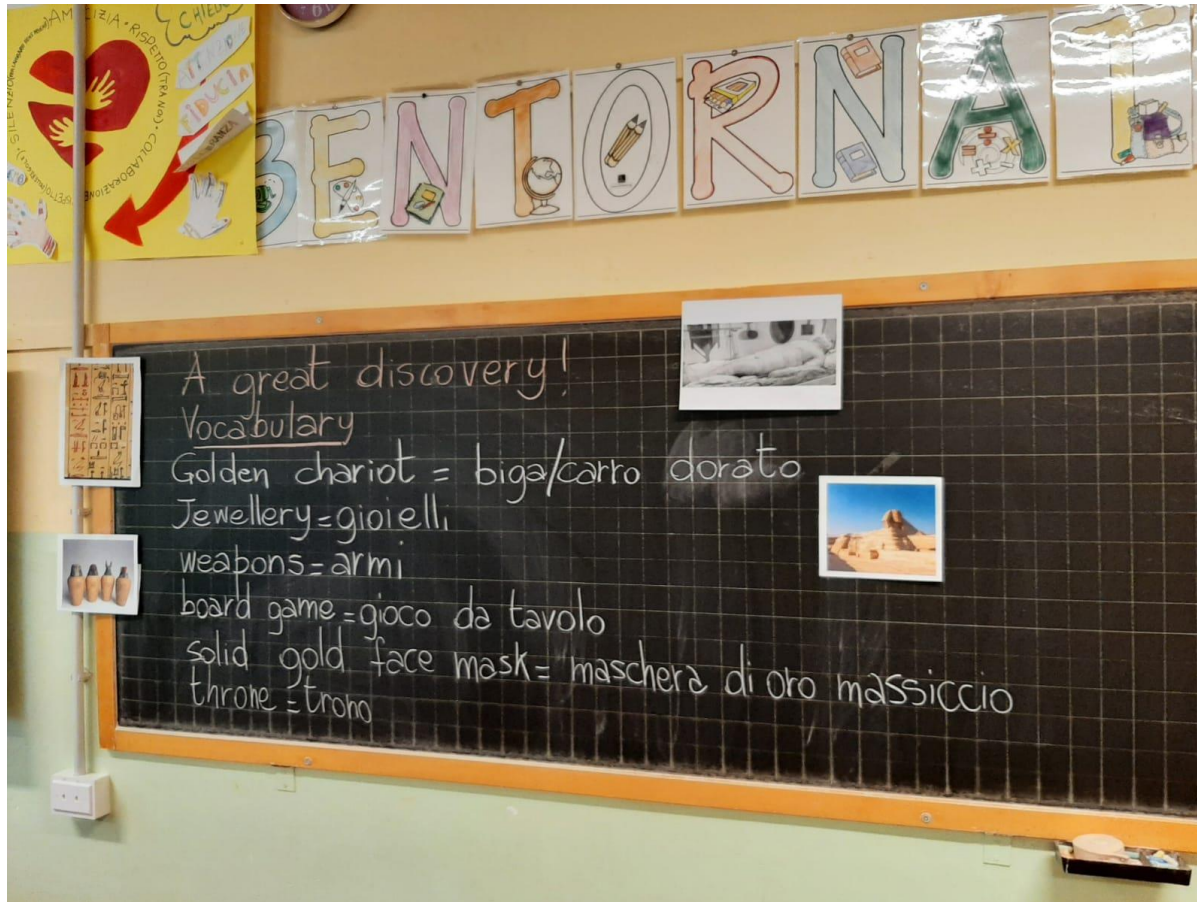 CHIEDO
AMICIZIA • RISPETTO (TRA NOI) • COLLABORAZIONE
SILENZIO
FIDUCIA
BENTORNATI
A great discovery!
Vocabulary
Golden chariot = biga/carro dorato
Jewellery=gioielli
weapons=armi
board game=gioco da tavolo
solid gold face mask= maschera di oro massiccio
throne = trono